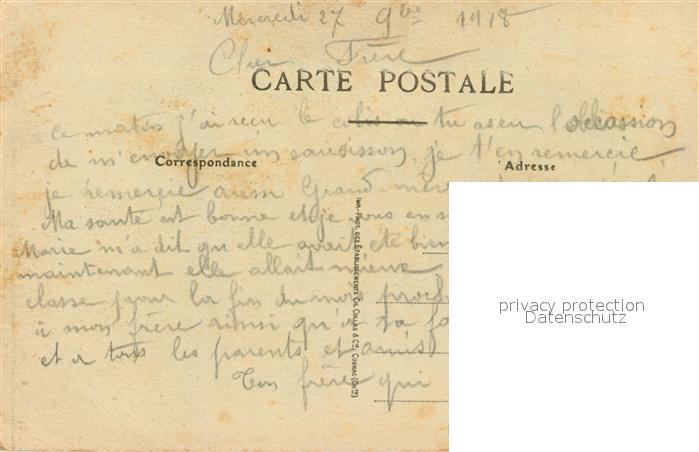 Mercredi 27 9bre 1918
Cher Frère
CARTE POSTALE
ce matin j'ai reçu le colis ou tu as eu l'occassion
de m'envoyer un saucisson je t'en remercie
Correspondance
Adresse
je remercie aussi Grand-mère
Ma santé est bonne et je vous en
Marie m'a dit qu'elle avait été bien
maintenant elle allait mieux
classe pour la fin du mois proch
à mon frère ainsi qu'à sa
et a tous les parents et amis
Ton frère qui
IMP.-PHOT. DES ÉTABLISSEMENTS CH. COLLAS & Cie, COGNAC (Chte)
privacy protection
Datenschutz